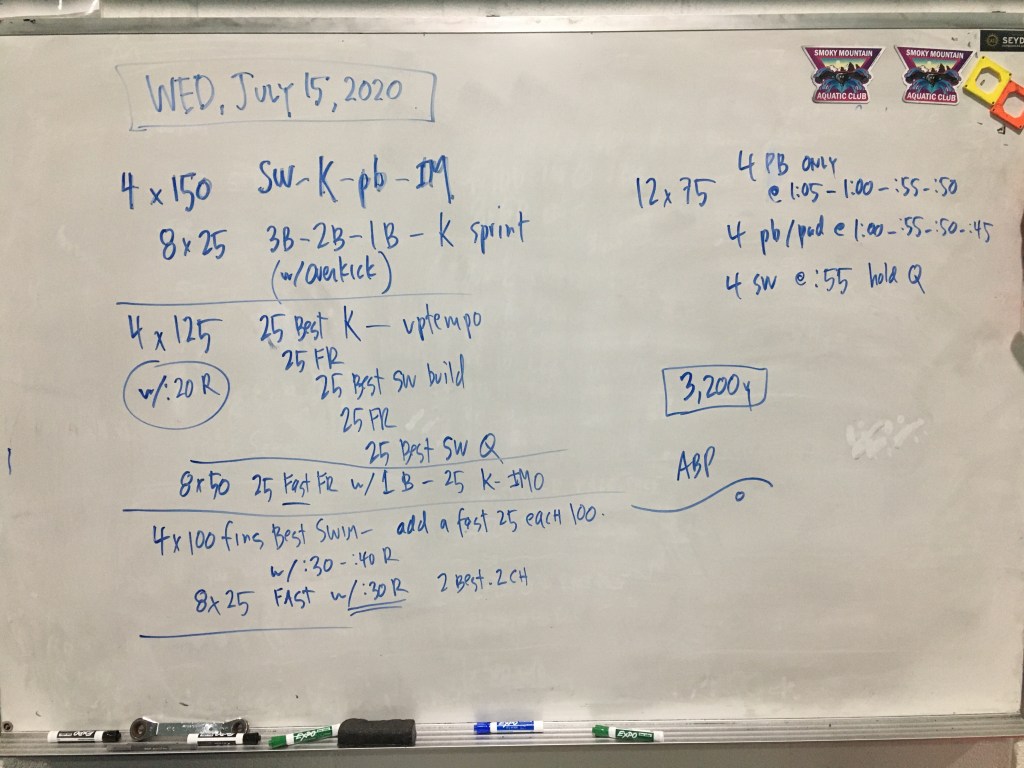 WED, JULY 15, 2020
4 x 150 SW-K-pb-IM
8 x 25 3B-2B-1B-K sprint
(w/overkick)
4 x 125 25 Best K - uptempo
w/:20 R
25 FR
25 Best SW build
25 FR
25 Best SW Q
8x50 25 Fast FR w/1 B - 25 K-IMO
4x100 fins Best Swim - add a fast 25 each 100.
w/:30-:40 R
8x25 FAST w/:30R 2 Best. 2 CH
12x75 4 PB ONLY
@ 1:05-1:00-:55-:50
4 pb/pad @ 1:00-:55-:50-:45
4 SW @ :55 hold Q
3,200y
ABP
SMOKY MOUNTAIN
AQUATIC CLUB
SMOKY MOUNTAIN
AQUATIC CLUB
SEYD
EXPO
EXPO
EXPO
EXPO
EXPO